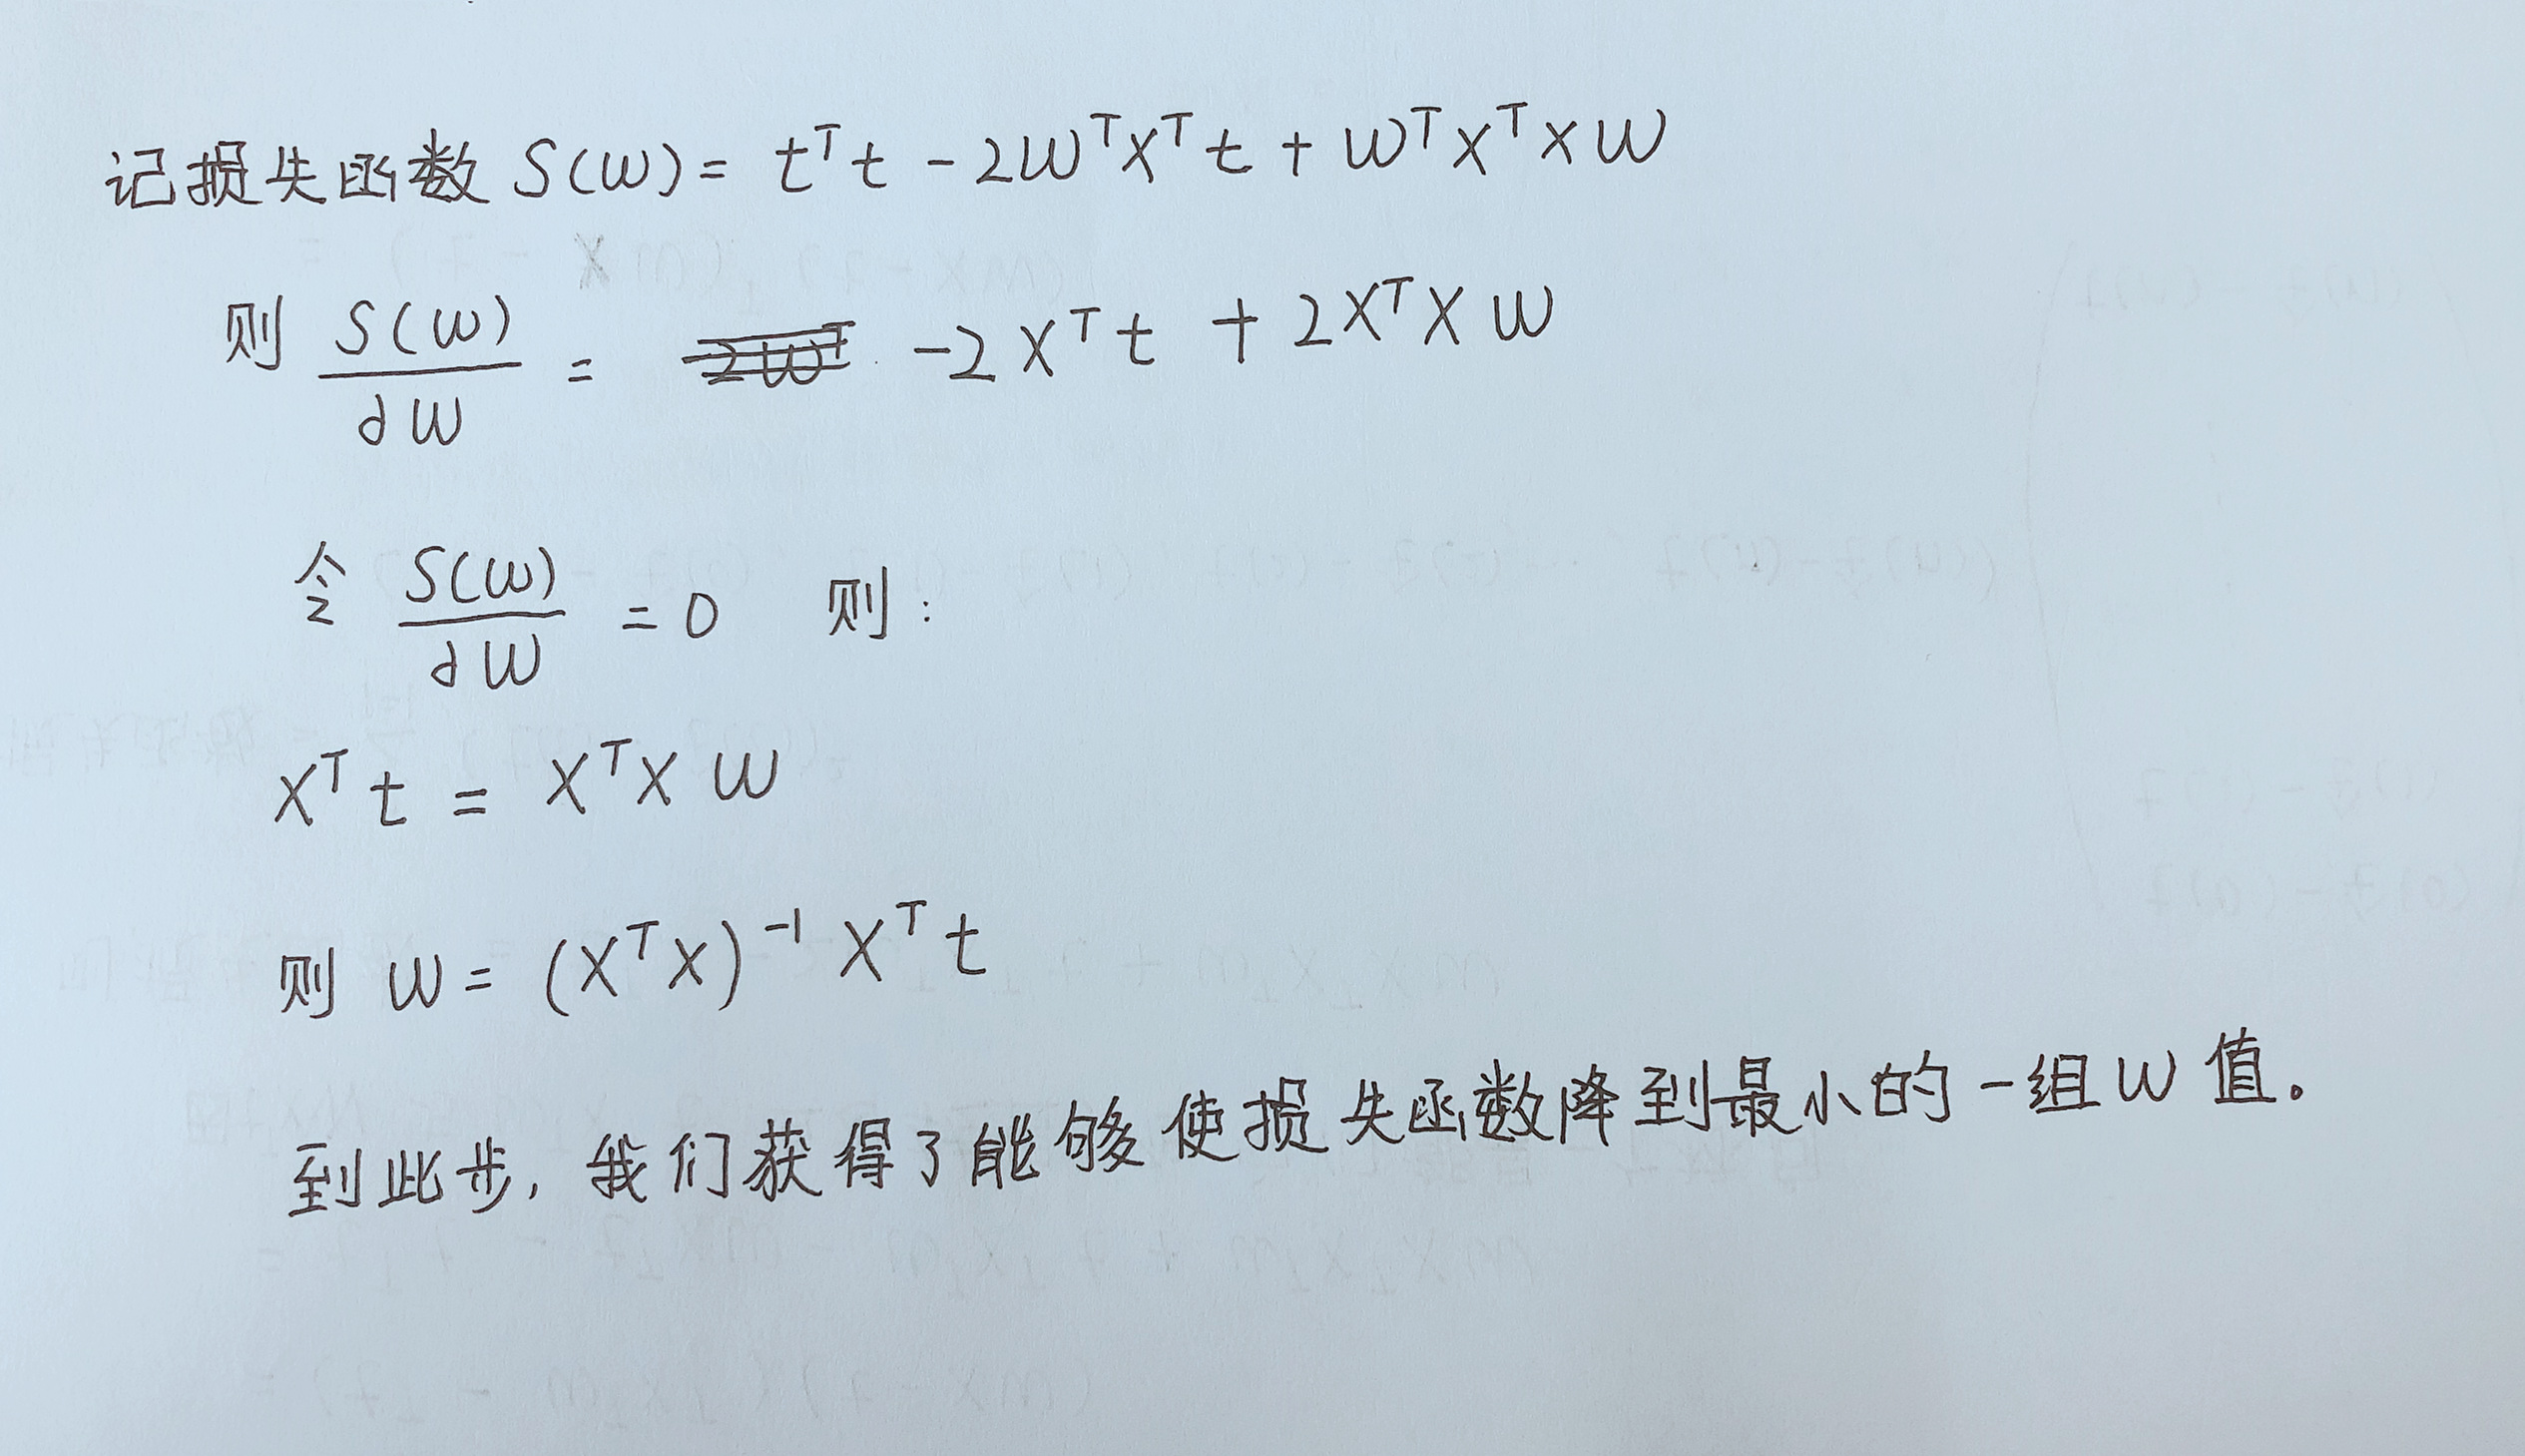 记损失函数 S(w) = tᵀt - 2wᵀXᵀt + wᵀXᵀXw
则 S(w)/∂w = -2Xᵀt + 2XᵀXw
令 S(w)/∂w = 0 则:
Xᵀt = XᵀXw
则 w = (XᵀX)⁻¹Xᵀt
到此步, 我们获得了能够使损失函数降到最小的一组w值。